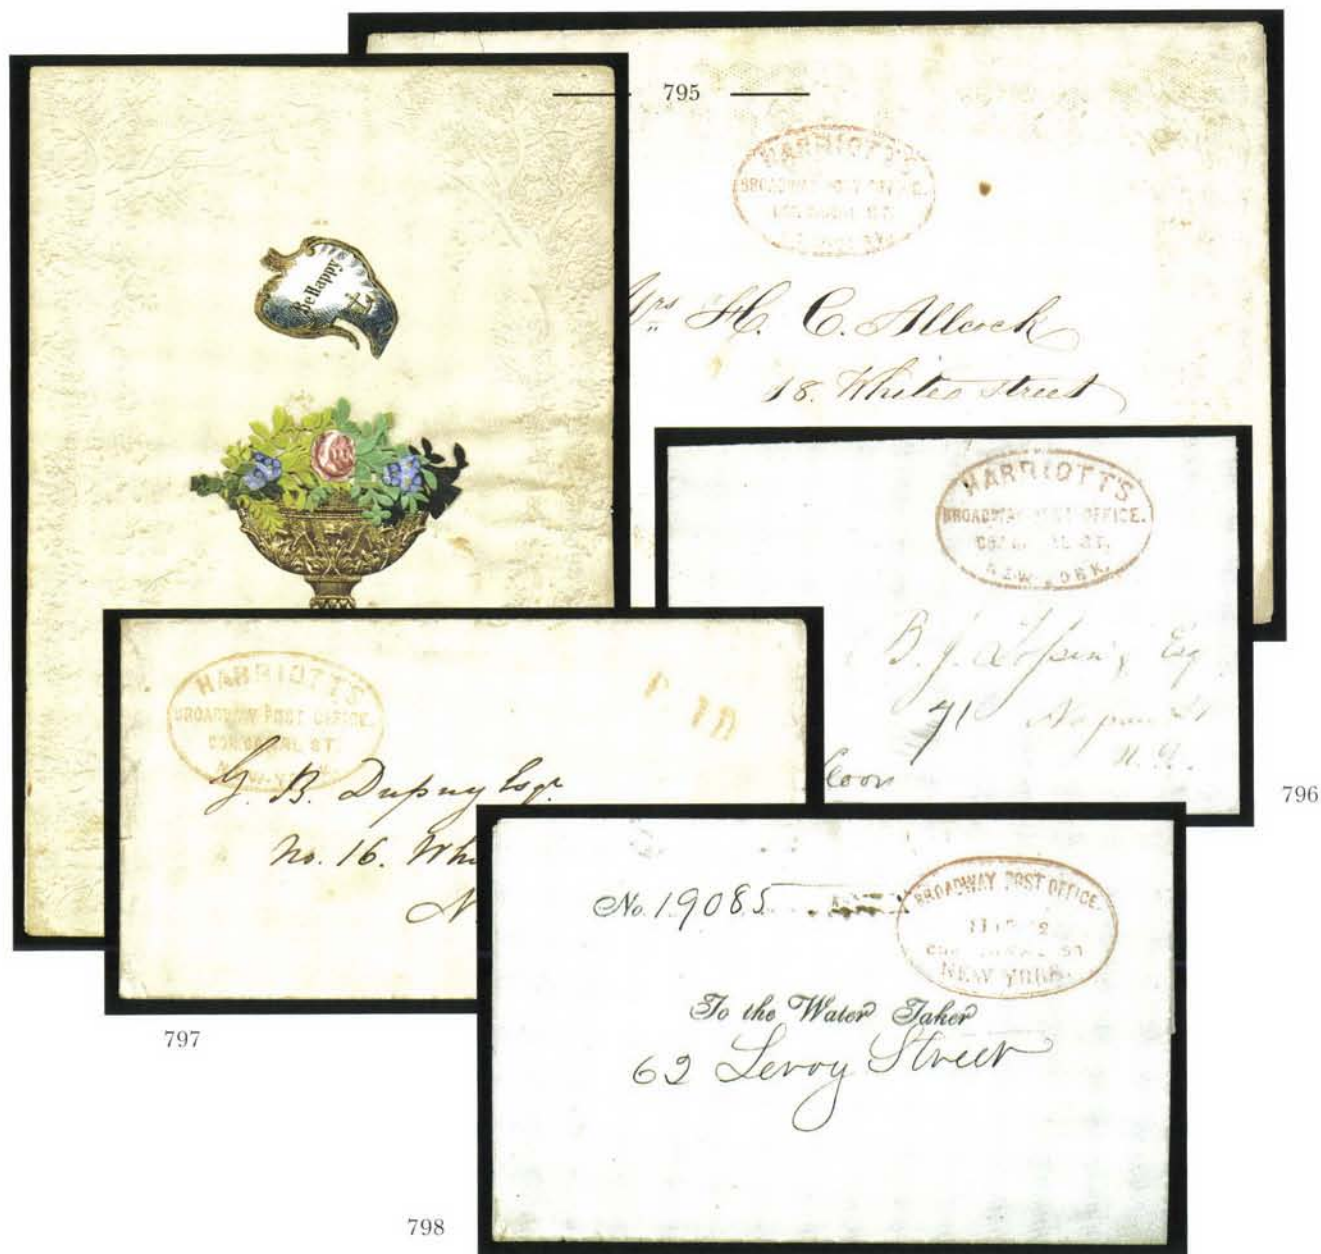 795
HARRIOTT'S
BROADWAY POST OFFICE.
Be Happy
Mrs H. C. Allcock
18. White street
HARRIOTT'S
BROADWAY POST OFFICE.
ST.
NEW YORK.
B. J. Esq
71
N.Y.
796
HARRIOTT'S
BROADWAY POST OFFICE.
COR CANAL ST.
G. B. Dupuy Esqr
No. 16. Whi
N
797
No. 19085
BROADWAY POST OFFICE.
ST
NEW YORK.
To the Water Taker
62 Leroy Street
798